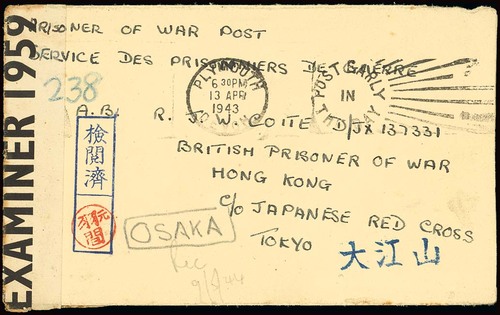 EXAMINER 1959
PRISONER OF WAR POST
SERVICE DES PRISONNIERS DE GUERRE
238
PLYMOUTH
6 30PM
13 APR
1943
POST EARLY
IN
THE DAY
A.B. R. J. W. COITE D/JX 137331
BRITISH PRISONER OF WAR
HONG KONG
C/O JAPANESE RED CROSS
TOKYO
大江山
檢閲濟
OSAKA
Rec